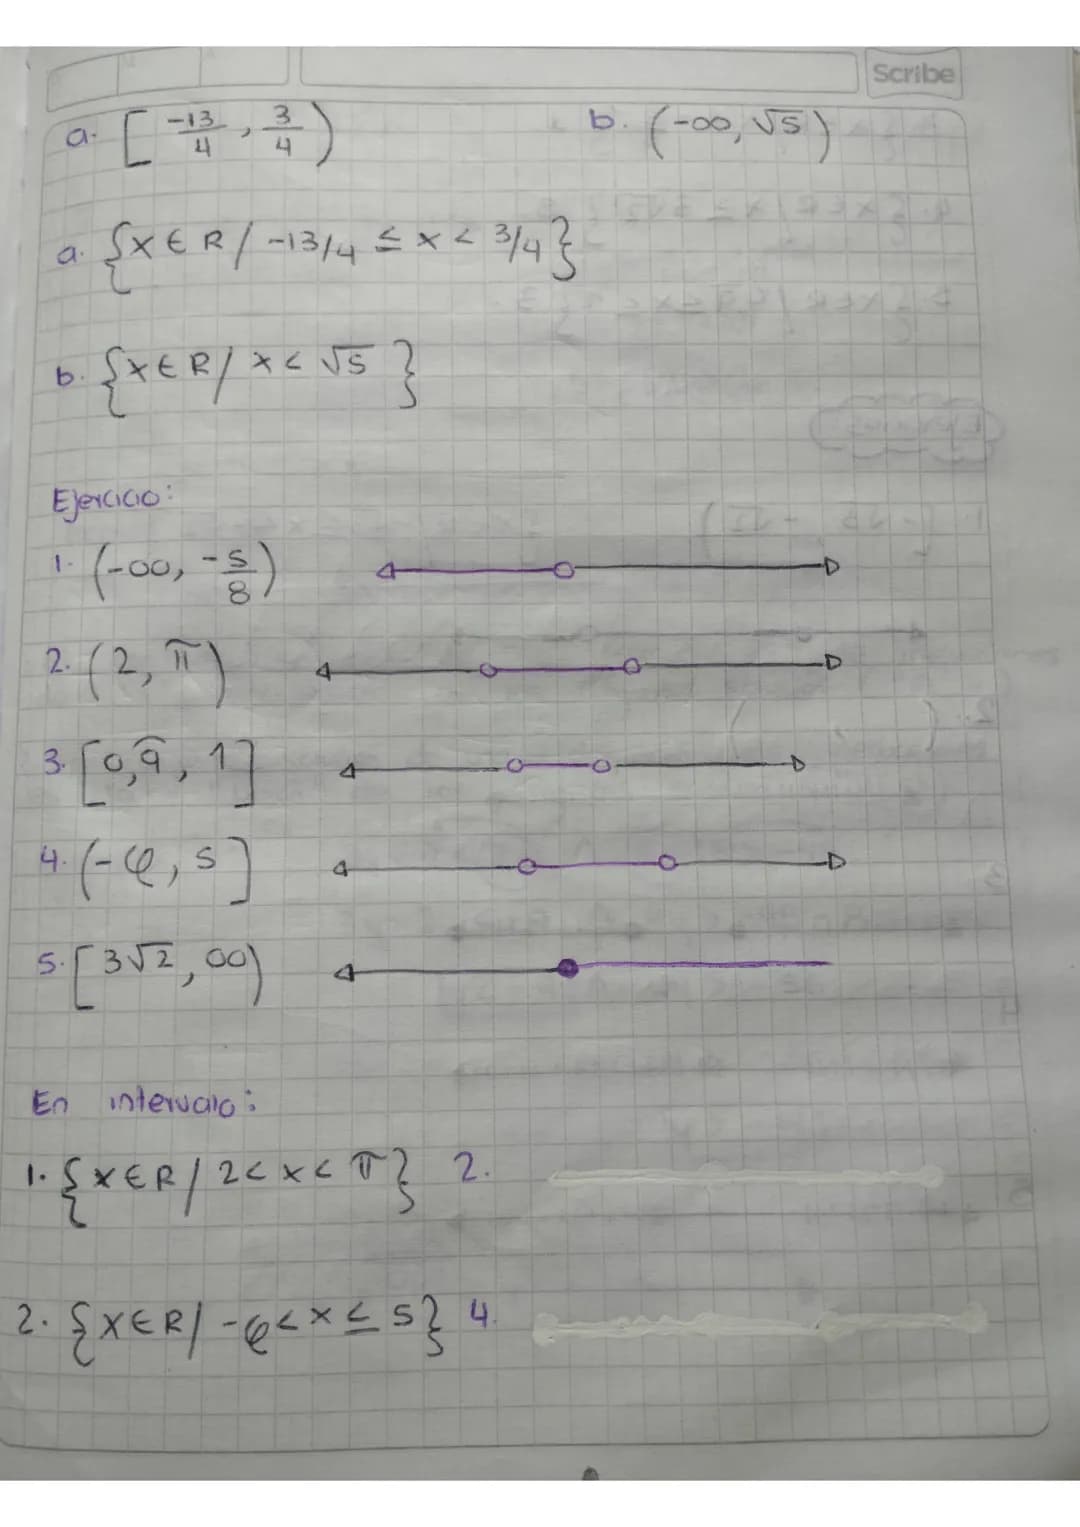 Scribe
a. [-13/4, 3/4) b. (-∞, √5)
a. {x ∈ R / -13/4 ≤ x < 3/4}
b. {x ∈ R / x < √5}
Ejercicio:
1. (-∞, -5/8)
2. (2, π)
3. [0,9̂, 1]
4. (-φ, 5]
5. [3√2, ∞)
En intervalo:
1. {x ∈ R / 2 < x < π} 2.
2. {x ∈ R / -φ < x ≤ 5} 4.